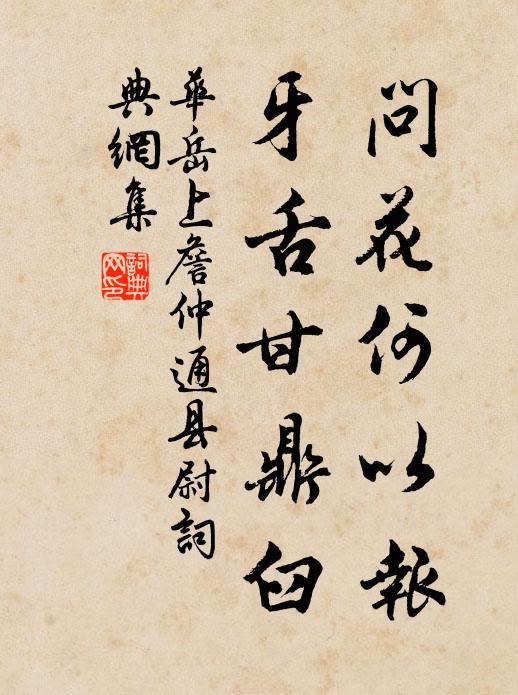 問花何以報
牙舌甘鼎臼
華岳上詹仲通县尉詞
典網集
詞典網印